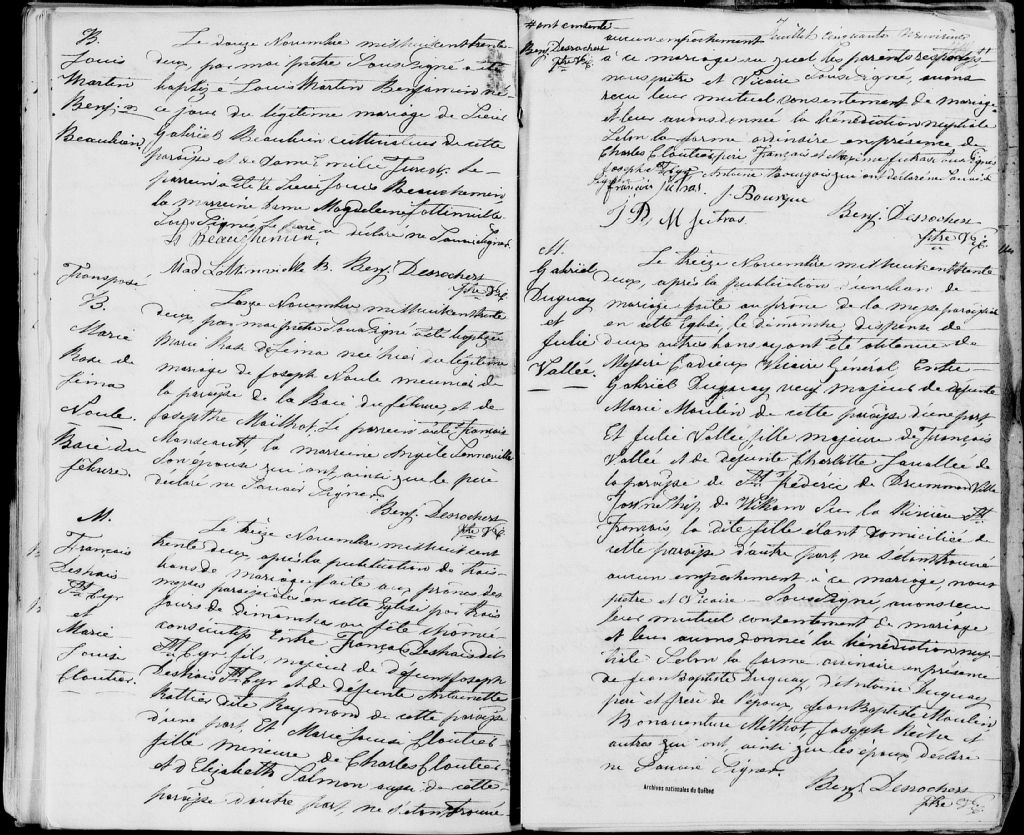 B.
Louis
Martin
Benj.in
Beaulieu
Le douze Novembre mil huit cent trente
deux, par moi prêtre Soussigné a été
baptisé Louis Martin Benjamin né
ce jour du légitime mariage de Sieur
Gabriel Beaulieu cultivateur de cette
paroisse et de Dame Emilie Turcot. Le
parrein a été le Sieur Louis Beauchemin
la marreine Dame Magdeleine Lottinville
Soussignés, le père a déclaré ne Savoir Signer.
Ls Beauchemin
Mad Lottinville B. Benj. Desrochers
ptre Vic
Transposé
B.
Marie
Rose de
Lima
Noule.
Baie du
febvre.
Novembre mil huit cent trente
deux, par moi prêtre Soussigné a été baptisée
Marie Rose de Lima née hier du légitime
mariage de Joseph Noule meunier de
la paroisse de la Baie du febvre et de
Josephte Mailhot. Le parrein a été François
Manseault, la marreine Angèle Lonneville
Son épouse qui ont, ainsi que le père
déclaré ne Savoir Signer.
Benj. Desrochers
ptre Vic
M.
François
Deshais
St Cyr
et
Marie
Louise
Cloutier.
Le treize Novembre mil huit cent
trente deux, après la publication de trois
bans de mariage faite aux prônes des
messes paroissiales en cette Eglise par trois
jours de dimanches ou fête chômée
consécutifs Entre François Deshais dit
St Cyr fils majeur de défunt Joseph
Deshais St Cyr et de défunte Antoinette
Rattier dite Raymond de cette paroisse
d'une part, Et Marie Louise Cloutier
fille mineure de Charles Cloutier
et d'Elizabeth Salmon aussi de cette
paroisse d'autre part, ne s'étant trouvé
# ont consenti
Benj. Desrochers
ptre Vic
Juillet cinquante
aucun empêchement
à ce mariage auquel les parents respectifs #
nous prêtre et Vicaire Soussigné, avons
reçu leur mutuel consentement de mariage
et leur avons donné la bénédiction nuptiale
Selon la forme ordinaire en présence de
Charles Cloutier père François et Maxime Jutras aux Signés
Joseph St Cyr Antoine Bourgois qui ont déclaré ne Savoir
Signer
François Jutras. J. Bourque
J B. M Jutras Benj. Desrochers
ptre Vic
M.
Gabriel
Duguay
et
Julie
Vallée.
Le treize Novembre mil huit cent trente
deux, après la publication d'un ban de
mariage faite au prône de la messe paroissiale
en cette Eglise, le dimanche, dispense de
deux autres bans ayant été obtenue de
Messire Cadieux Vicaire Général Entre
Gabriel Duguay veuf majeur de défunte
Marie Moulin de cette paroisse d'une part,
Et Julie Vallée fille majeure de François
Vallée et de défunte Charlotte Lavallée de
la paroisse de St Fréderic de Drummond Ville
Township de Wikam Sur la Rivière St
François la dite fille étant domiciliée de
cette paroisse d'autre part, ne s'étant trouvé
aucun empêchement à ce mariage, nous
prêtre et Vicaire Soussigné, avons reçu
leur mutuel consentement de mariage
et leur avons donné la bénédiction nup-
tiale Selon la forme ordinaire en présence
de Jean Baptiste Duguay, d'Antoine Duguay,
père et frère de l'époux, Jean Baptiste Moulin
Bonaventure Milhot, Joseph et
autres qui ont, ainsi que les époux, déclaré
ne Savoir Signer.
Benj. Desrochers
ptre Vic
Archives nationales du Québec